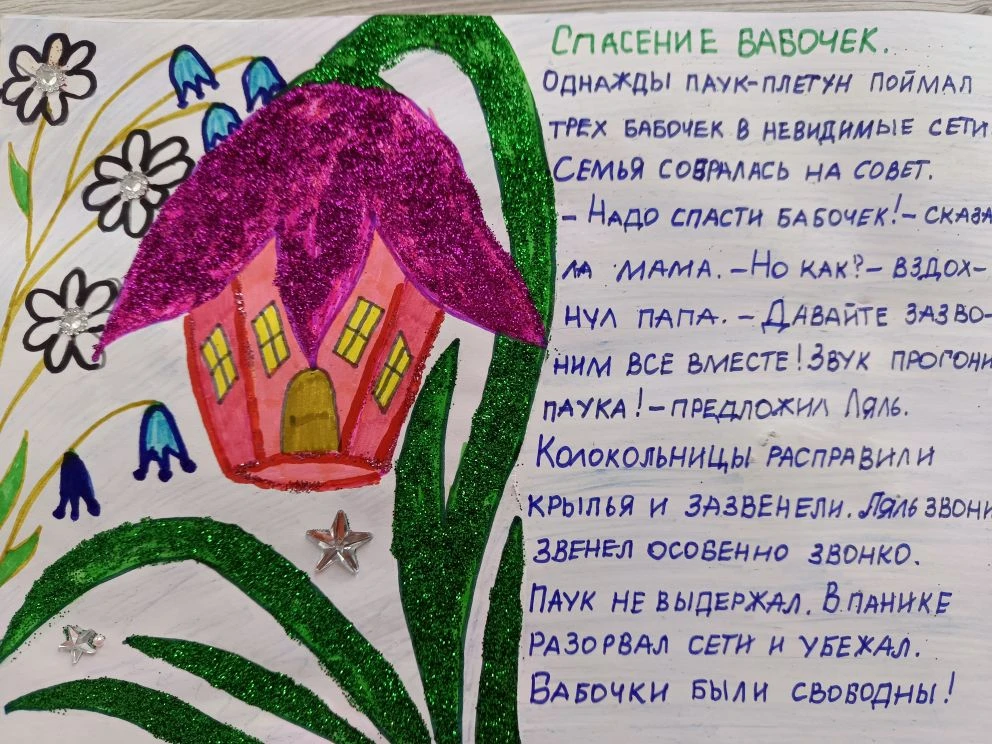 СПАСЕНИЕ БАБОЧЕК.
ОДНАЖДЫ ПАУК-ПЛЕТУН ПОЙМАЛ
ТРЕХ БАБОЧЕК В НЕВИДИМЫЕ СЕТИ
СЕМЬЯ СОБРАЛАСЬ НА СОВЕТ.
- НАДО СПАСТИ БАБОЧЕК! - СКАЗА
ЛА МАМА. - НО КАК? - ВЗДОХ-
НУЛ ПАПА. - ДАВАЙТЕ ЗАЗВО-
НИМ ВСЕ ВМЕСТЕ! ЗВУК ПРОГОНИ
ПАУКА! - ПРЕДЛОЖИЛ ЛЯЛЬ.
КОЛОКОЛЬНИЦЫ РАСПРАВИЛИ
КРЫЛЬЯ И ЗАЗВЕНЕЛИ. ЛЯЛЬ ЗВОНИ
ЗВЕНЕЛ ОСОБЕННО ЗВОНКО.
ПАУК НЕ ВЫДЕРЖАЛ. В ПАНИКЕ
РАЗОРВАЛ СЕТИ И УБЕЖАЛ.
БАБОЧКИ БЫЛИ СВОБОДНЫ!